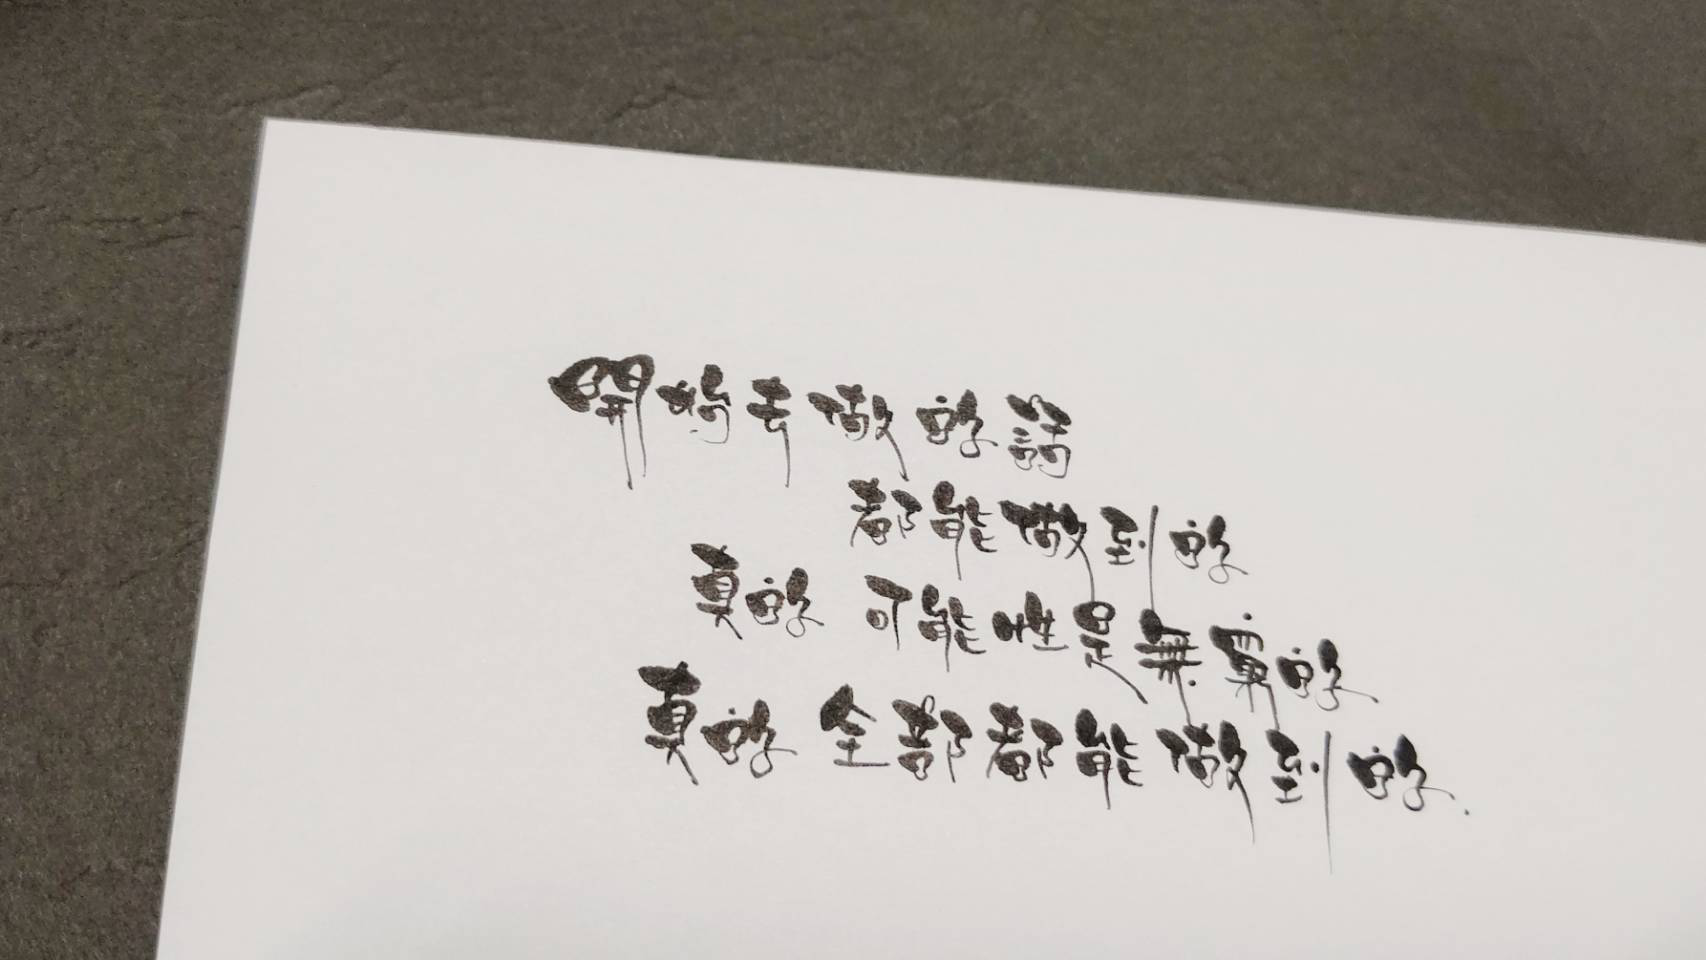 開始去做的話
都能做到的
真的 可能性是無窮的
真的 全部都能做到的.